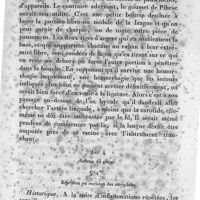 d'appareils. Le contraire advenant, le goumet de Pibrac
serait son utilité. C'est une petite bourse destinée à
loger la portion libre ou mobile de la langue et qu'on
peut garnir de charpie, ou de toute autre pièce de
pansement. Les deux tiges d'argent qui en soutiennent la
base, étaient supportent chacune un ruban à leur extré-
mité libre, sont coudées de façon qu'en tirant sur lui en
arrière et en dehors on force l'autre portion à pénétrer
dans la bouche. En supposant qu'il survint une hémor-
rhagie inquiétante, une hémorrhagie que les moyens
indiqués plus haut ne pussent arrêter définitivement, on
serait bien forcé d'en venir à la ligature. Alors c'est à son
passage au-dessus de l'os hyoïde qu'il faudrait aller
chercher l'artère linguale, à moins que la carotide, elle-
même ne dût être embrassée par le fil. Il serait même
prudent de commencer par là, si la langue devait être
amputée près de sa racine avec l'instrument tran-
chant.
Art.
Isthme du gosier.
Résection ou excision des amygdales.
Historique. A la suite d'inflammations répétées, les